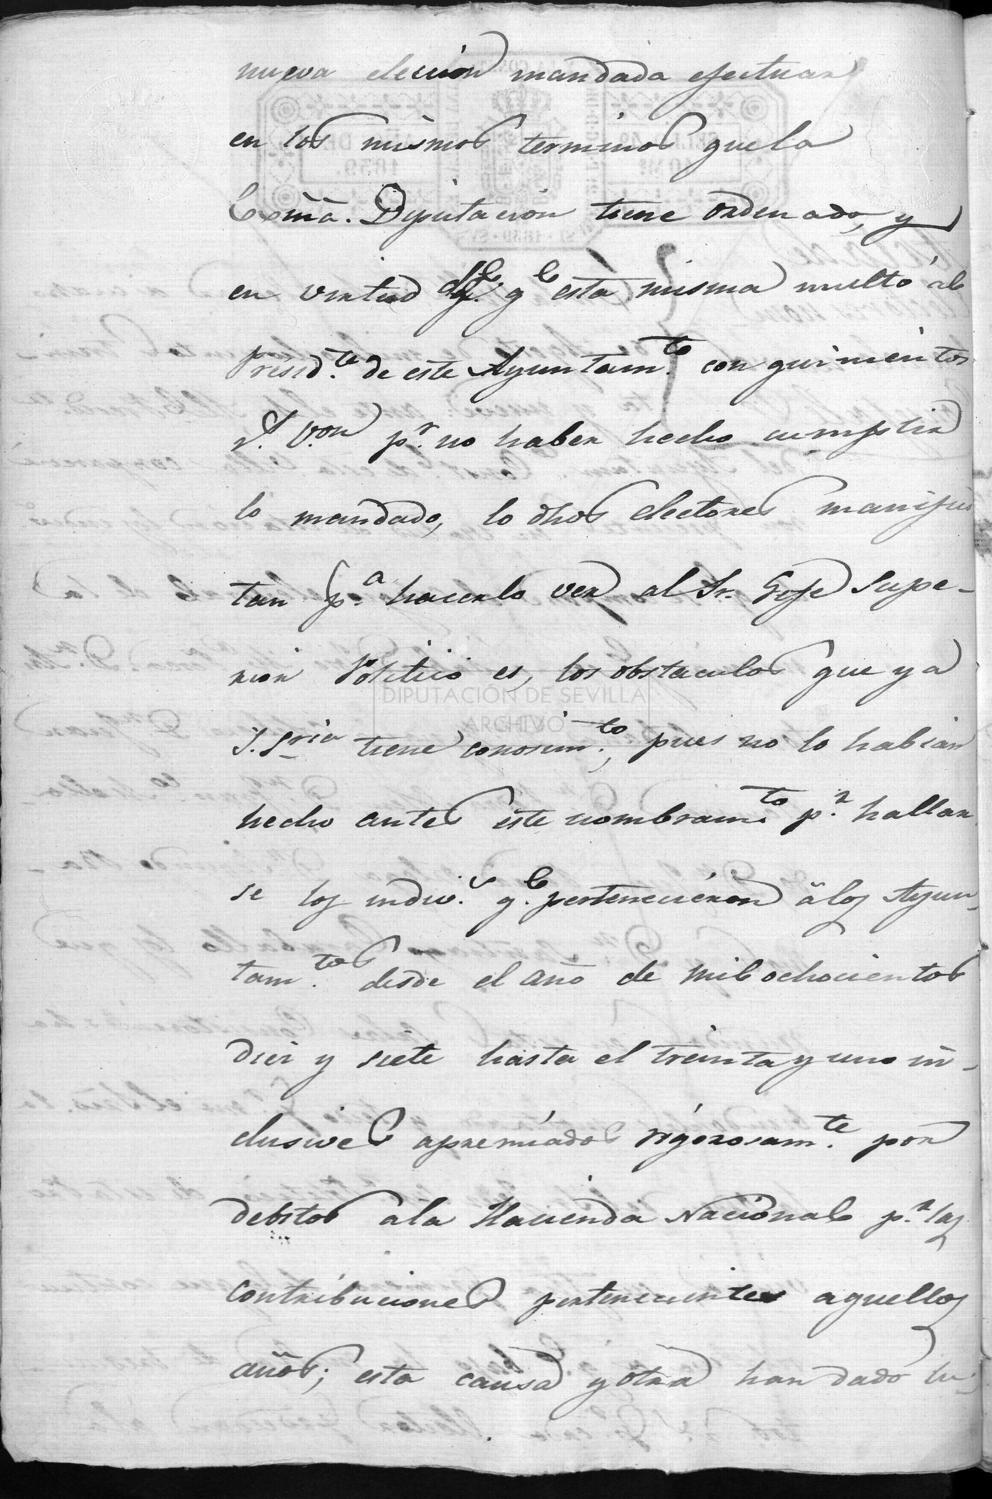 nueva elección mandada efectuar
en los mismos terminos que la
Exmã. Diputacion tiene ordenado, y
en virtud qe esta misma multó al
Presid.te de este Ayuntam.to con quinientos
r.s v.on p.r no haber hecho cumplir
lo mandado, lo dhos electores manifies
tan p.a hacerlo ver al Sr. Gefe Supe-
rior Politico es, los obstaculos que ya
S. Sria tiene conosim.to, pues no lo habian
hecho antes este nombram.to p.r hallar
se los indiv.s q.e pertenecieron á los Ayun
tam.tos desde el año de mil ochocientos
diez y siete hasta el treinta y uno in-
clusives apremiados rigorosam.te por
debitos á la Hacienda Nacional p.r las
contribuciones pertenecientes aquellos
años; esta causa y otra han dado lu-
DIPUTACIÓN DE SEVILLA
ARCHIVO